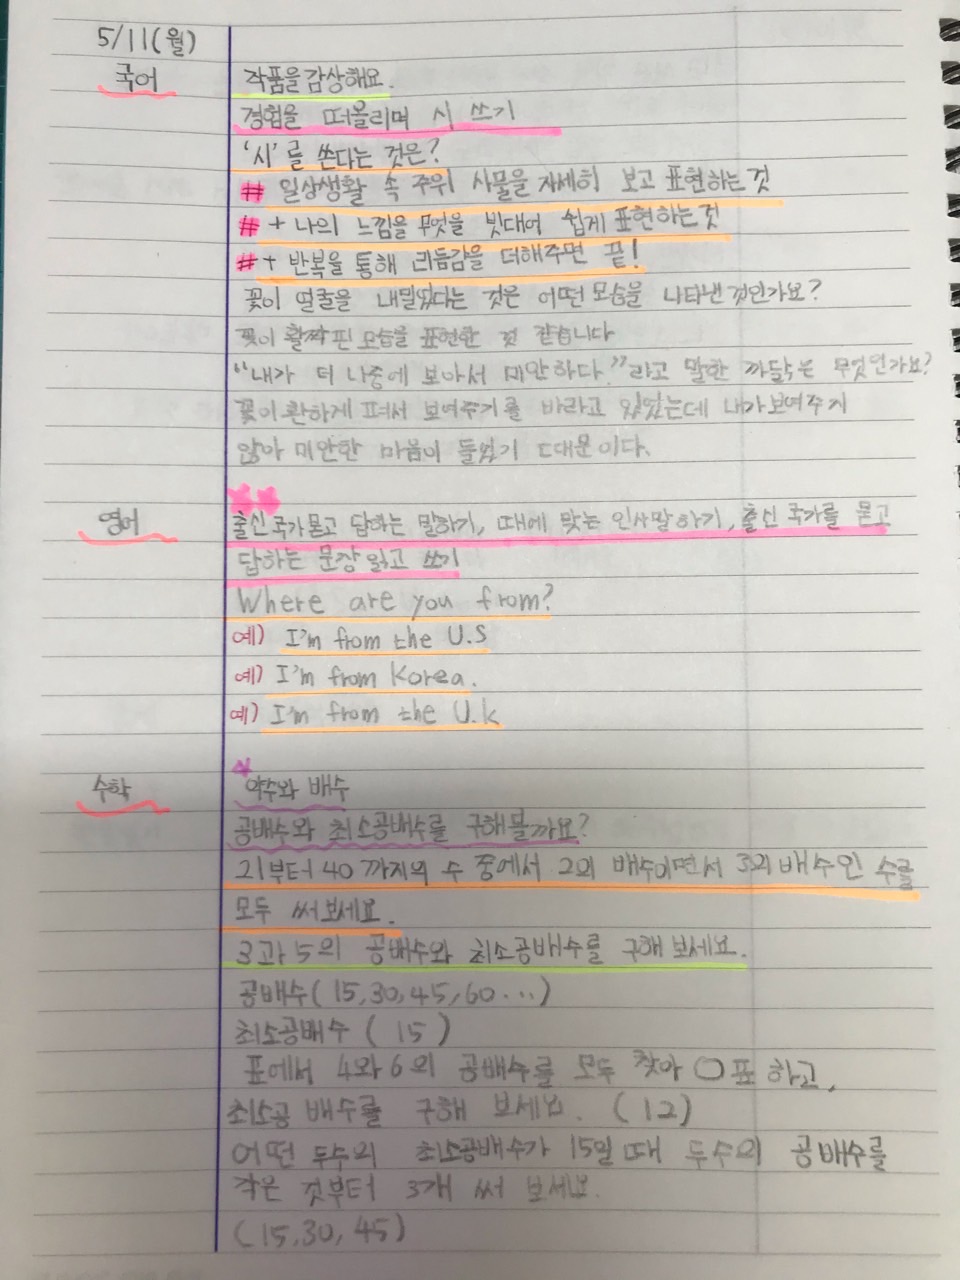 5/11(월)
국어
작품을 감상해요.
경험을 떠올리며 시 쓰기
'시'를 쓴다는 것은?
# 일상생활 속 주위 사물을 자세히 보고 표현하는 것
# + 나의 느낌을 무엇을 빗대어 쉽게 표현하는 것
# + 반복을 통해 리듬감을 더해주면 끝!
꽃이 얼굴을 내밀었다는 것은 어떤 모습을 나타낸 것인가요?
꽃이 활짝 핀 모습을 표현한 것 같습니다
"내가 더 나중에 보아서 미안하다."라고 말한 까닭은 무엇인가요?
꽃이 환하게 펴서 보여주기를 바라고 있었는데 내가 보여주지
않아 미안한 마음이 들었기 때문이다.
영어
출신 국가 묻고 답하는 말하기, 때에 맞는 인사말하기, 출신 국가를 묻고
답하는 문장 읽고 쓰기
Where are you from?
예) I'm from the U.S
예) I'm from Korea.
예) I'm from the U.k
수학
약수와 배수
공배수와 최소공배수를 구해볼까요?
21부터 40까지의 수 중에서 2의 배수이면서 3의 배수인 수를
모두 써 보세요.
3과 5의 공배수와 최소공배수를 구해 보세요.
공배수(15,30,45,60...)
최소공배수 (15)
표에서 4와 6의 공배수를 모두 찾아 ○표 하고,
최소공배수를 구해 보세요. (12)
어떤 두수의 최소공배수가 15일 때 두수의 공배수를
작은 것부터 3개 써 보세요.
(15,30,45)